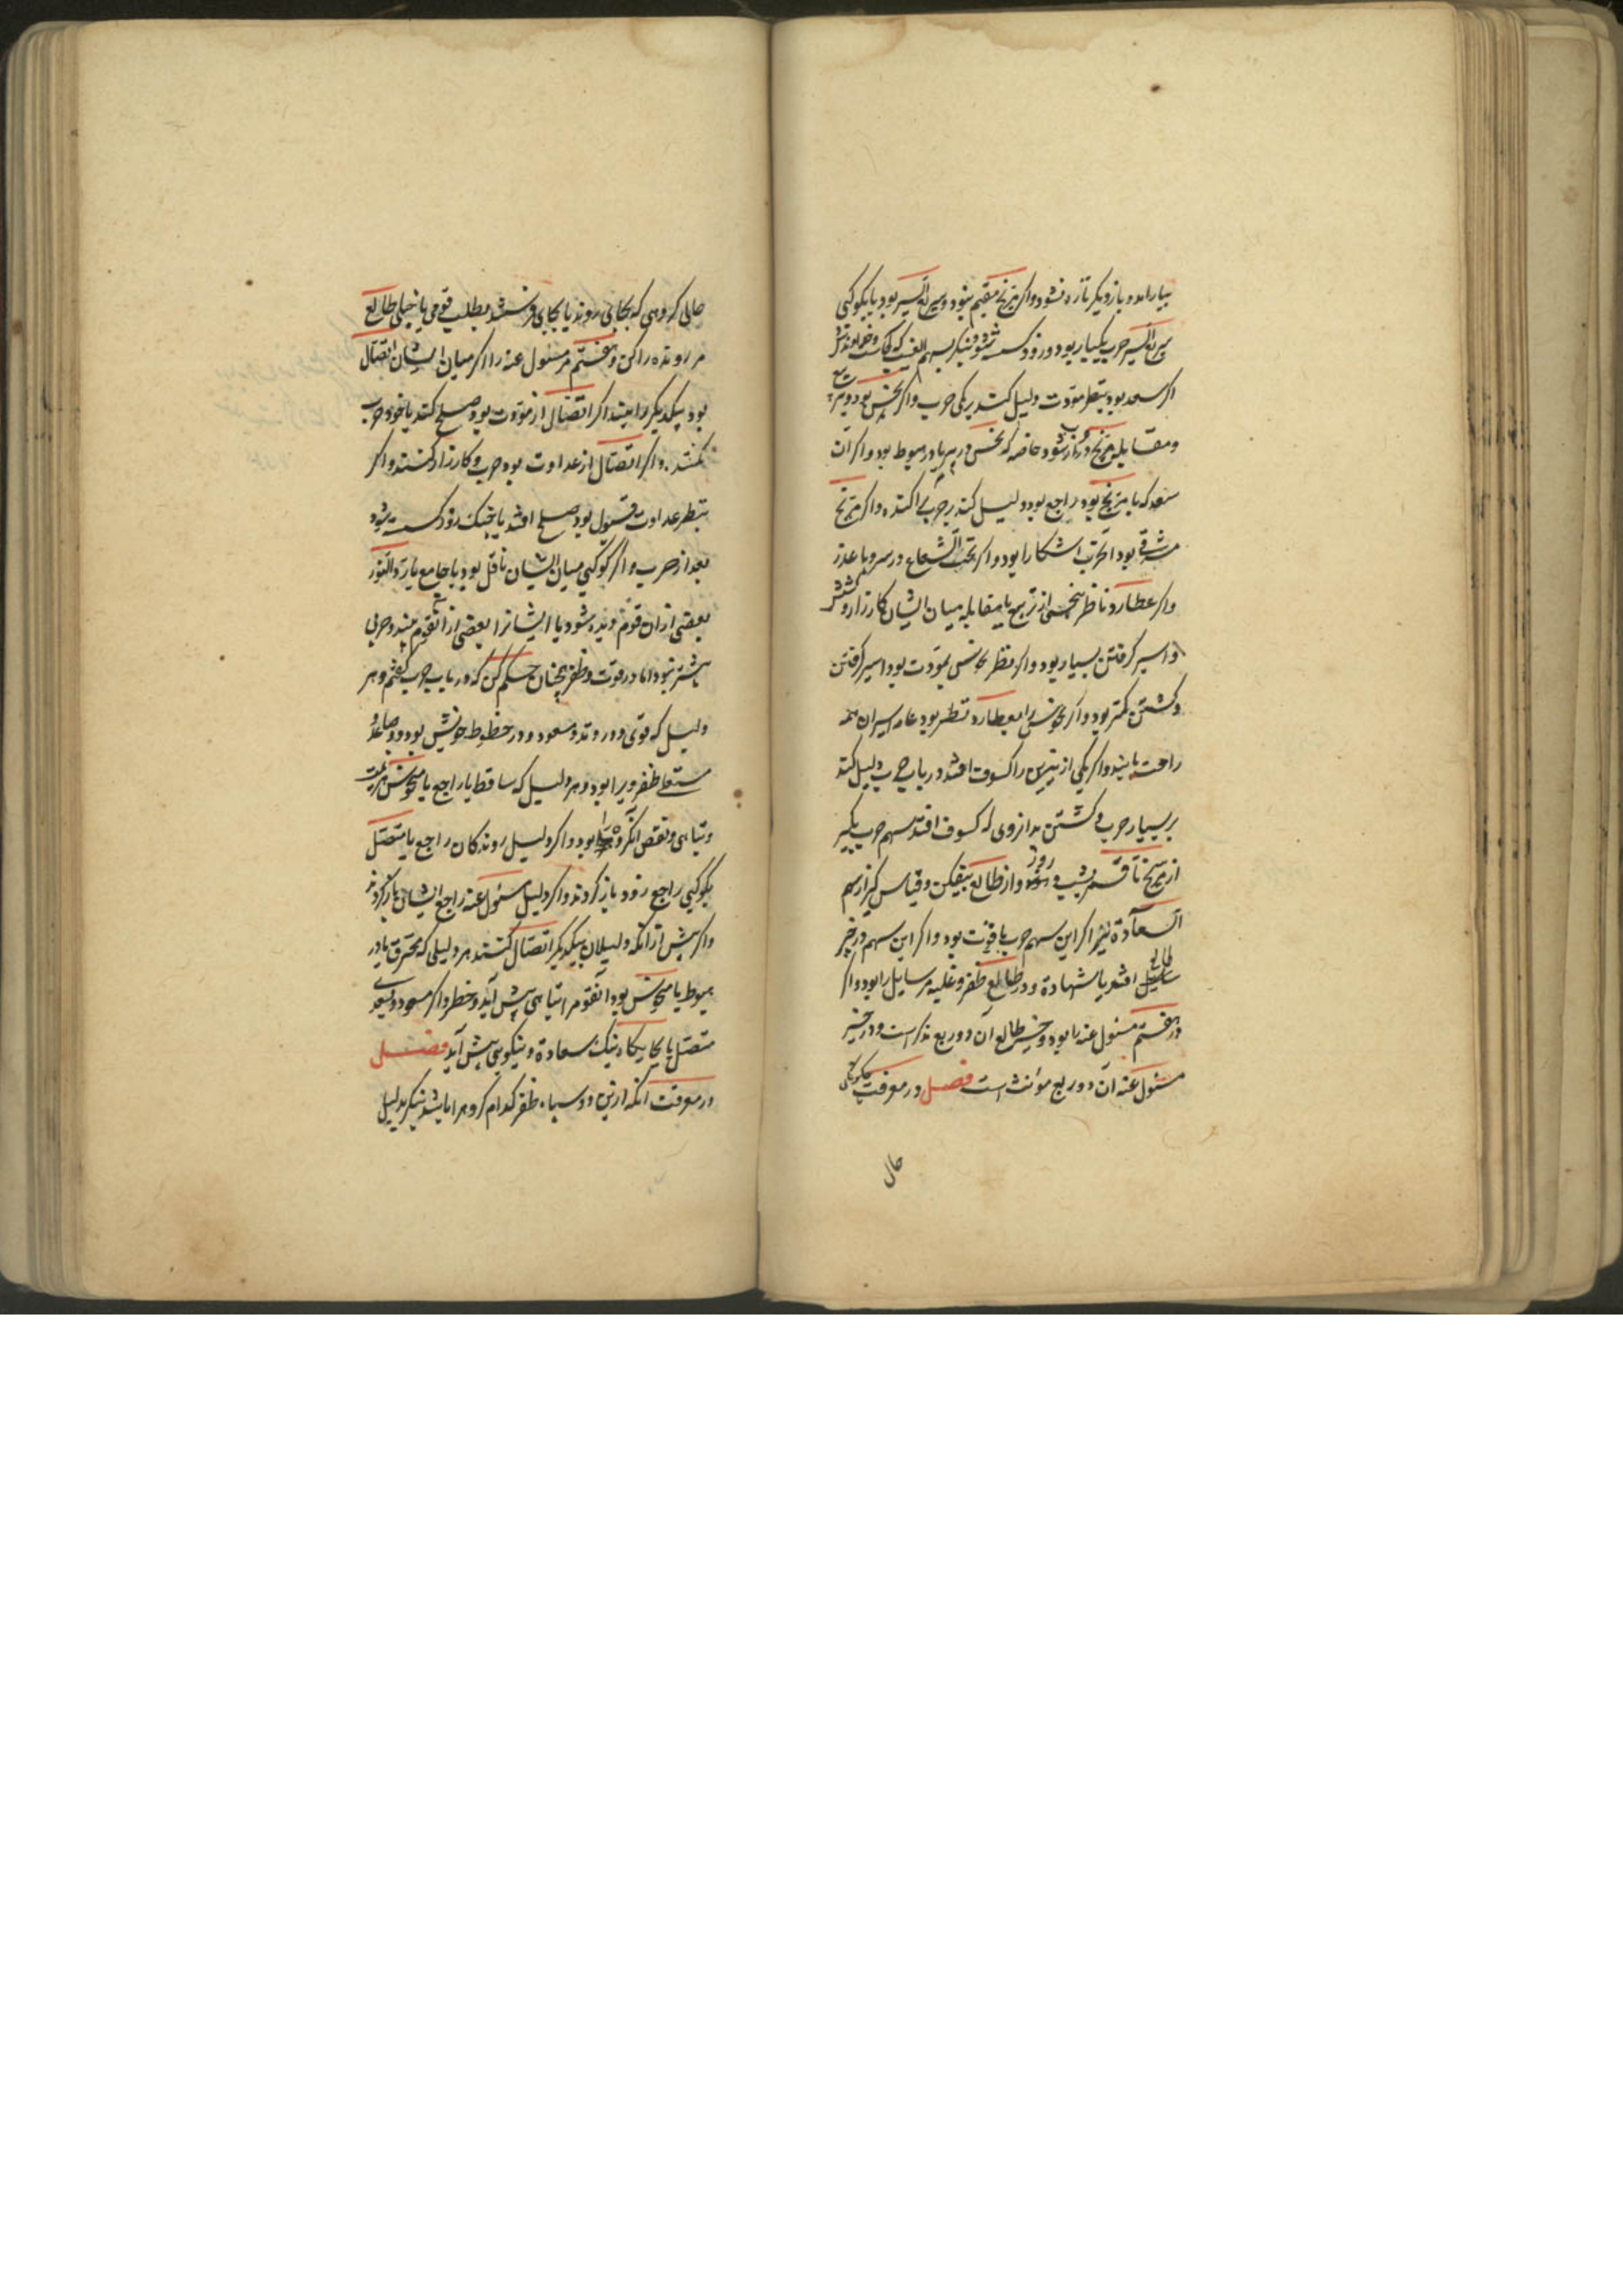 بیارامد و باز دیگر تازه نشود و اگر مریخ مقیم نبود و سریع السیر بود یا بکوکبی
سریع السیر حرب یکبار بود و زود کسسته شود و بنکر بسهم الغیب که کجاست و خداوندش
اگر سعد بود بنظر مودت دلیل کند بر یکی حرب و اگر نحس بود و تربیع
و مقابله مریخ دراز شود خاصه که نحس در بیر یا در هبوط بود و اگر آن
سعد که با مریخ بود راجع بود دلیل کند بر حرب پراکنده و اگر مریخ
مشرقی بود آن حرب اشکارا بود و اگر تحت الشعاع در سر و با عذر
و اگر عطارد ناظر بنحس از تربیع یا مقابله میان ایشان کارزار و کشش
و اسیر گرفتن بسیار بود و اگر نظر نحوس بمودت بود اسیر گرفتن
و کشتن کمتر بود و اگر نحوس را بعطارد نظر بود عامه اسیران همه
راحت یابند و اگر یکی از نیرین را کسوف افتد در باب حرب دلیل کند
بر بسیار حرب و کشتن بدان روی که کسوف افتد سهم حرب بگیر
از مریخ تا قمر بشب و روز و از طالع بیفکن و قیاس گیر از سهم
السعادة نیز اگر این سهم حرب با قوت بود و اگر این سهم در خیر
طالع افتد یا شهادة و در طالع ظفر و غلبه مر سایل را بود و اگر
در هفتم مسئول عنه را بود و خیر طالع آن دو ربع مذکر است و در خیر
مسئول عنه آن دو ربع مؤنث است فصل در معرفت چگونگی
حال
حالی گروهی که بجایی روند یا بجایی فرستند بطلب قومی یا خیلی طالع
مر رونده را کن و هفتم مر مسئول عنه را اگر میان ایشان اتصال
بود یکدیگر را بینند اگر اتصال از مودت بود صلح کنند یا خود حرب
نکنند و اگر اتصال از عداوت بود حرب و کارزار کنند و اگر
بنظر عداوت قبول بود صلح افتد یا جنگ زود کسسته شود
بعد از حرب و اگر کوکبی میان ایشان ناقل بود یا جامع یا رد النور
بعضی از ان قوم دیده شود یا ایشانرا بعضی از آن قوم بینند و حربی
بیشتر نبود اما در قوت و ظفر همچنان حکم کن که در باب حرب گفتم و هر
دلیل که قوی و در وتد و مسعود و در حظوظ خویش بود و صاعد
مستعلی ظفر ویرا بود و هر دلیل که ساقط یا راجع یا منحوس هزیمت
و تباهی و نقص آن گروه را بود و اگر دلیل روندکان راجع یا متصل
بکوکبی راجع زود باز گردند و اگر دلیل مسئول عنه راجع ایشان باز گردند
و اگر پیش از آنکه دلیلان بیکدیگر اتصال کنند هر دلیلی که محترق یا در
هبوط یا منحوس بود آن قوم را تباهی پیش آید و خطر و اگر مسعود و بسعدی
متصل یا بجایگاه نیک سعادة و نیکویی پیش آید فصل
در معرفت آنکه ازین دو سپاه ظفر کدام گروه را باشد بنکر بدلیل